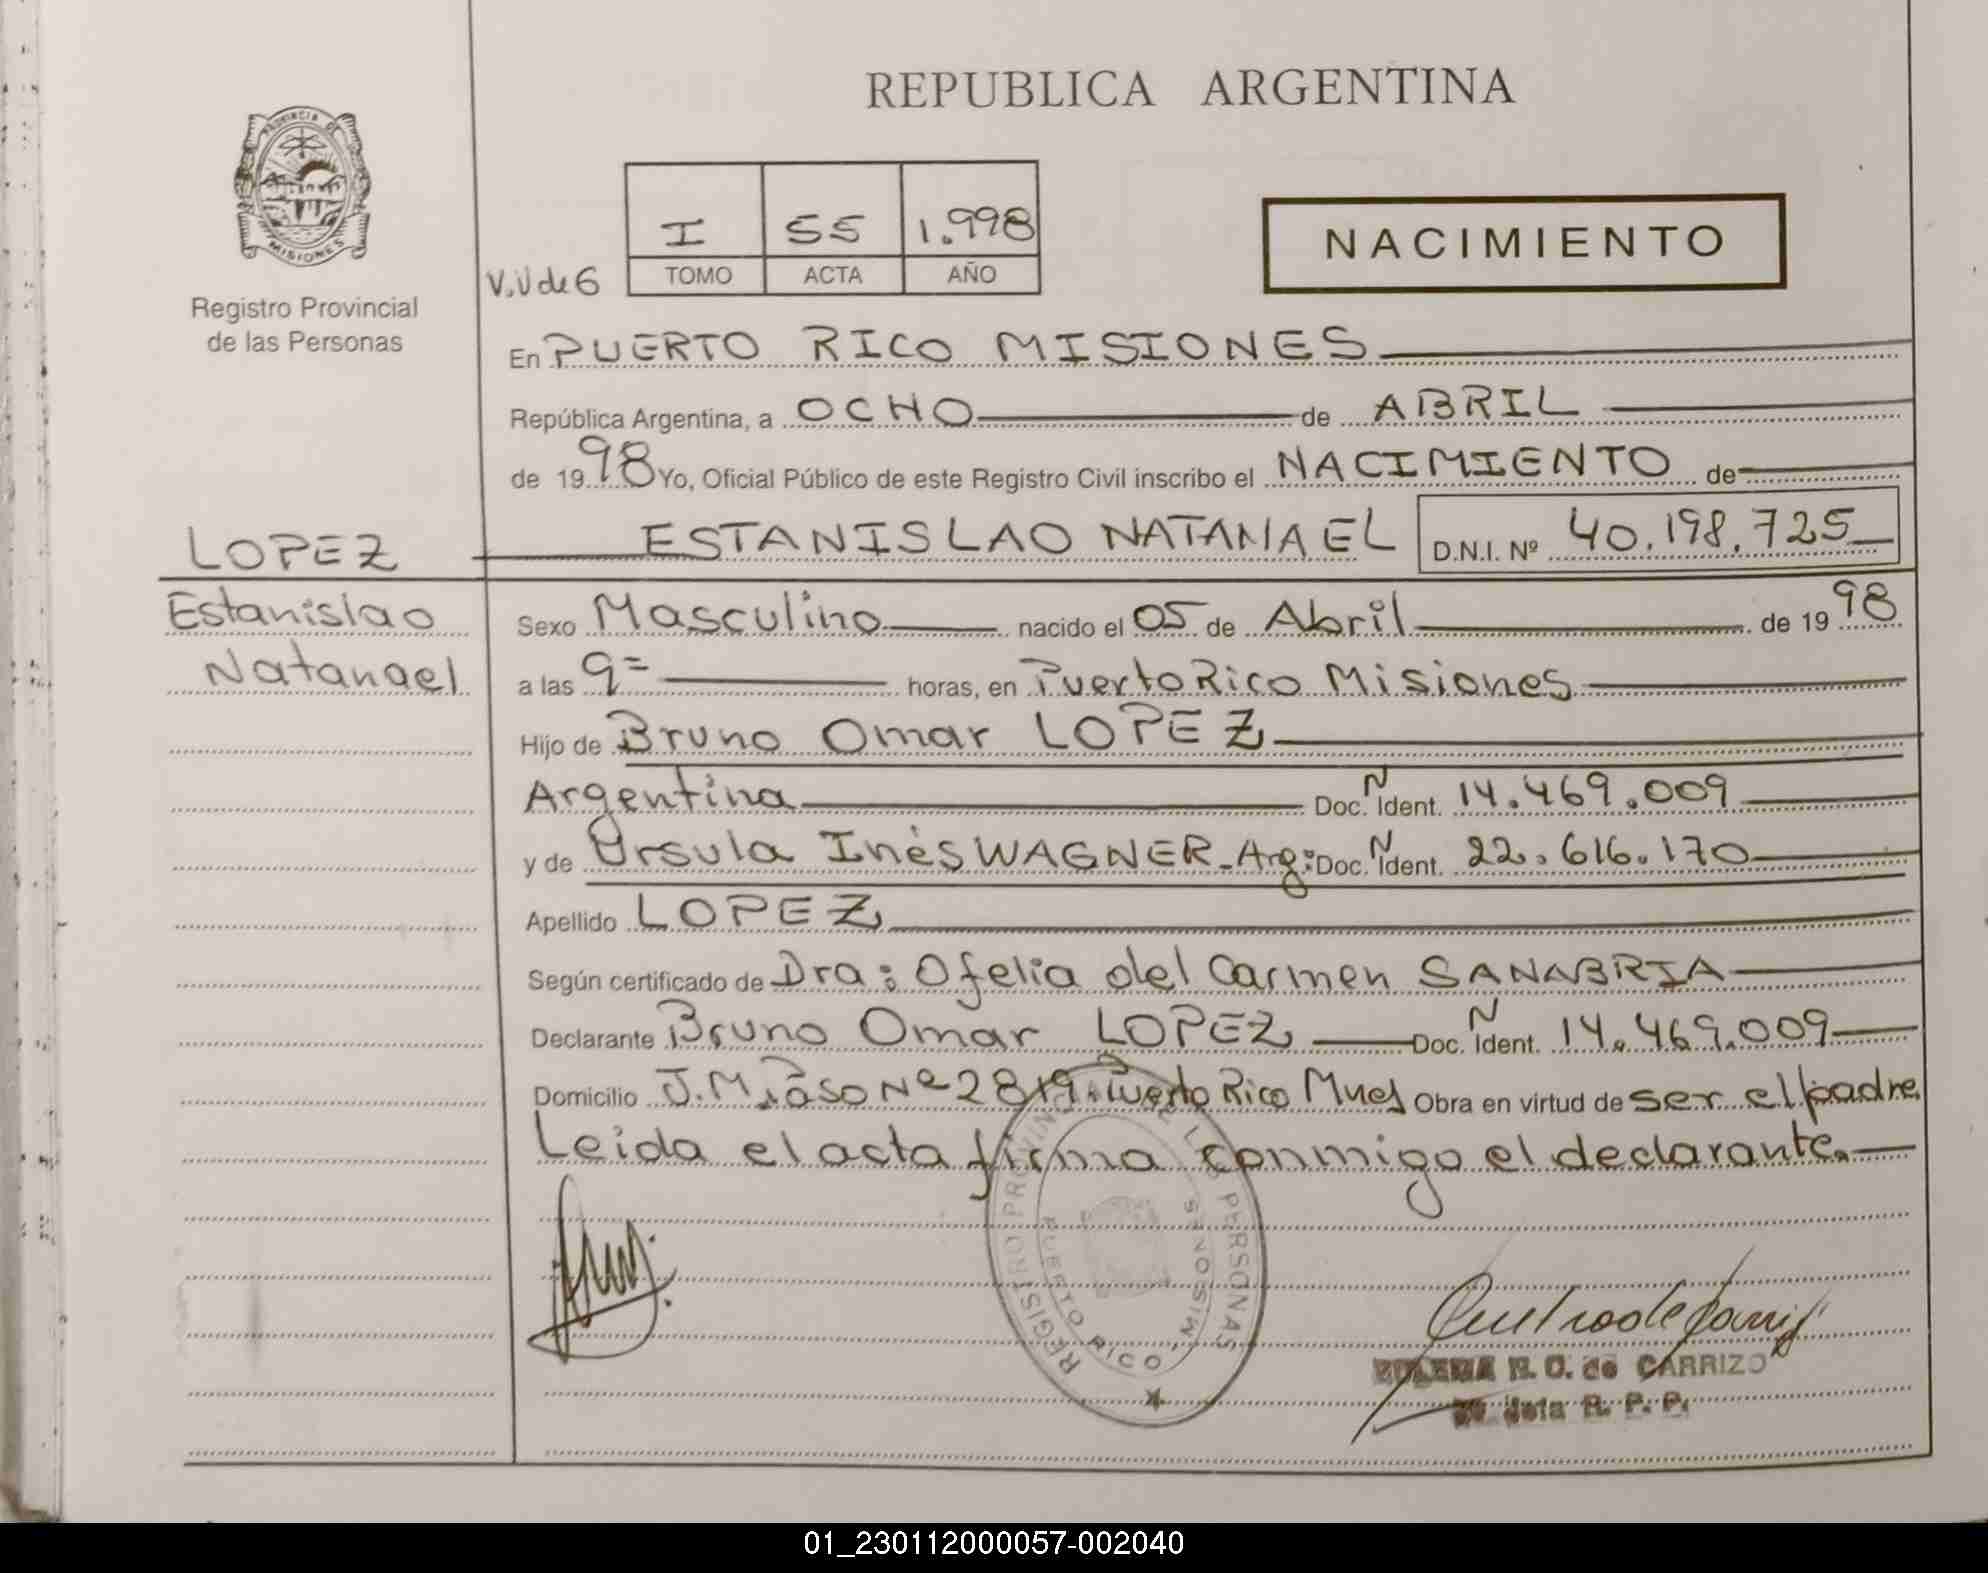 REPUBLICA ARGENTINA
PROVINCIA DE
MISIONES
Registro Provincial
de las Personas
I 55 1.998
TOMO ACTA AÑO
NACIMIENTO
En PUERTO RICO MISIONES
República Argentina, a OCHO de ABRIL
de 1998 Yo, Oficial Público de este Registro Civil inscribo el NACIMIENTO de
LOPEZ
ESTANISLAO NATANAEL D.N.I. Nº 40.198.725
Estanislao
Natanael
Sexo Masculino nacido el 05 de Abril de 1998
a las 9= horas, en Puerto Rico Misiones
Hijo de Bruno Omar LOPEZ
Argentina Doc. N Ident. 14.469.009
y de Ursula Inés WAGNER - Arg: Doc. N Ident. 22.616.170
Apellido LOPEZ
Según certificado de Dra: Ofelia del Carmen SANABRIA
Declarante Bruno Omar LOPEZ Doc. N Ident. 14.469.009
Domicilio J.M. Nº Puerto Rico Mnes Obra en virtud de ser el padre
Leida el acta firma conmigo el declarante.
REGISTRO PROVINCIAL DE LAS PERSONAS
PUERTO RICO, MISIONES
R. O. de CARRIZO
Jefa R. P. P.
01_230112000057-002040